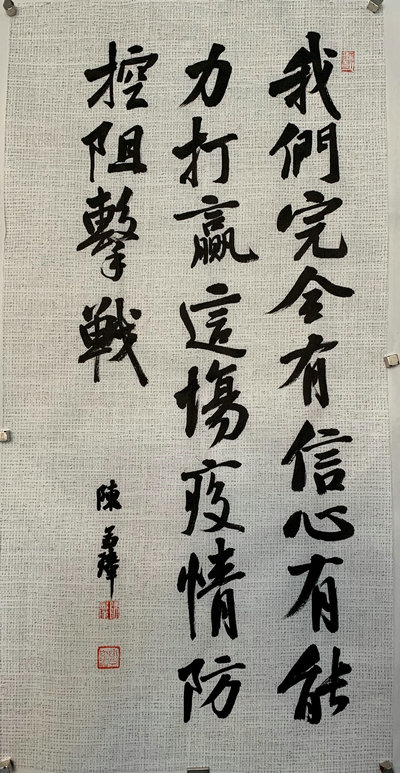 我們完全有信心有能
力打贏這場疫情防
控阻擊戰
陳